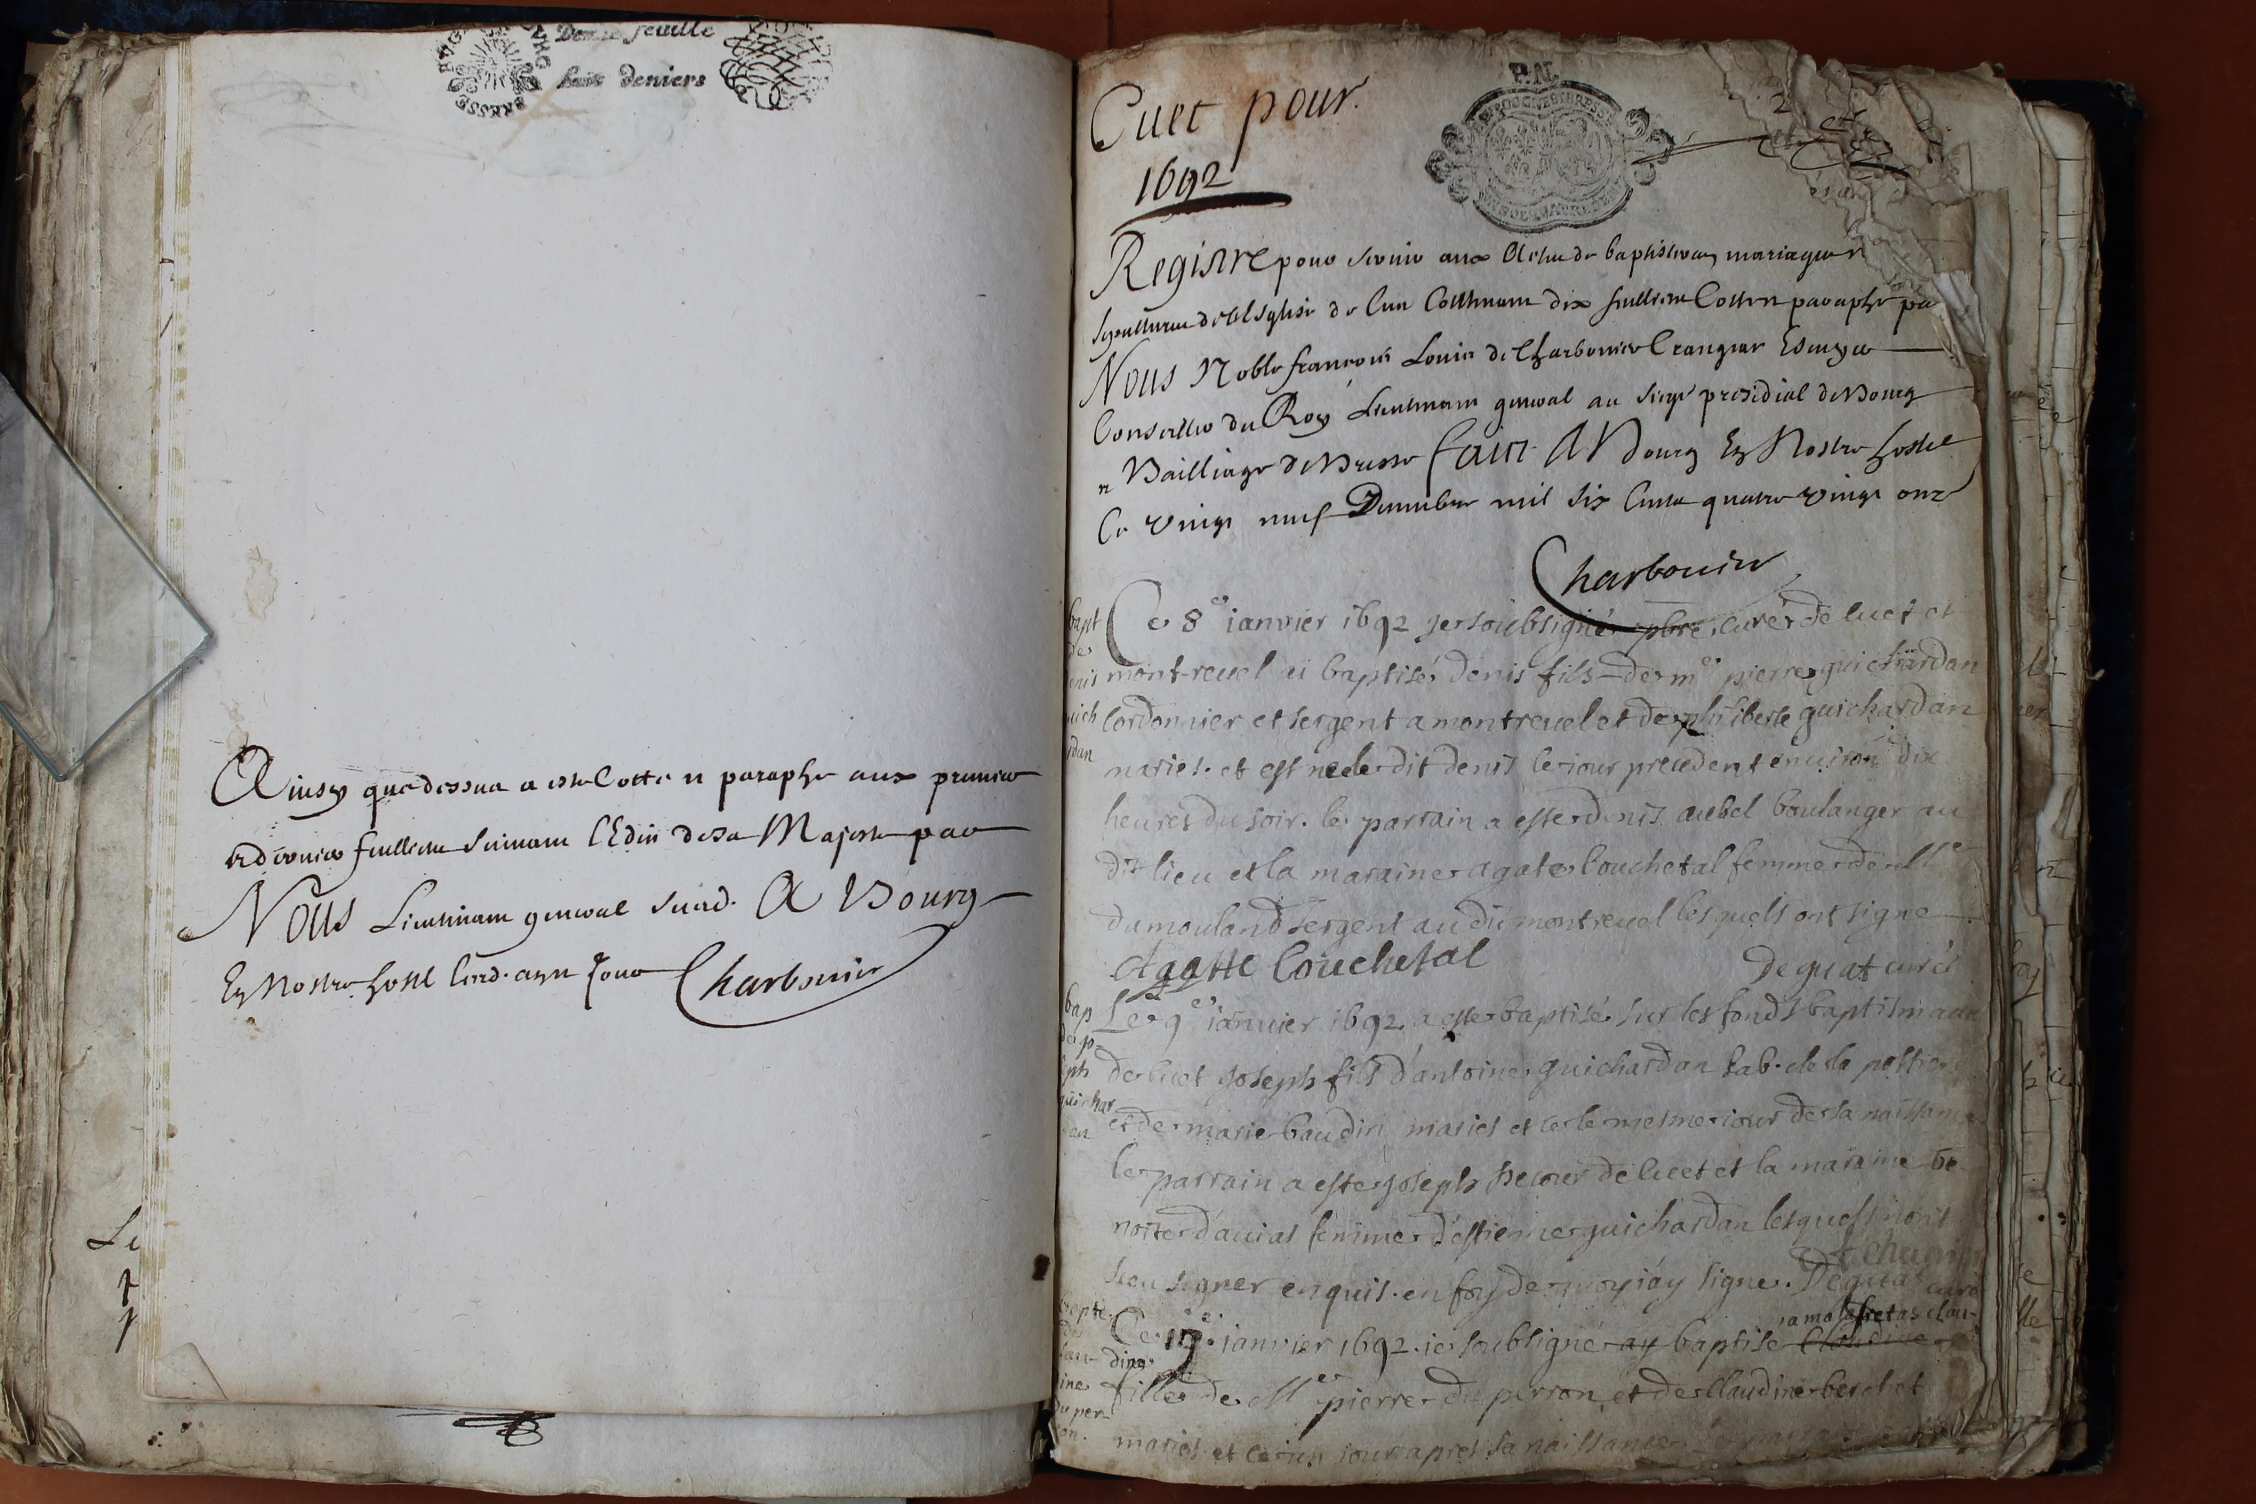 Demie feuille
huit deniers
Ainsy que dessus a esté Cotté et paraphé aux premier
et dernier feuillets suivant l'Edit de sa Majesté par
Nous Lieutenant general susd. A Bourg
En Nostre hostel lesd. an et jour Charbonier
Cuet pour
1692
Registre pour servir aux Actes de baptistaires mariages et
sepultures de l'Esglise de Cuet Contenant dix feuillets Cottés et paraphé par
Nous Noble françois Louis de Charbonier Crangeac Escuyer
Conseiller du Roy Lieutenant general au siege presidial de Bourg
et Bailliage de Bresse fait A Bourg En Nostre hostel
Ce vingt neuf Decembre mil six Cents quatre vingt onze
Charbonier
bapt
de
denis
guich
ardan
Ce 8e ianvier 1692 je soubsigné pbre curé de cuet et
mont-revel ai baptisé denis fils de me pierre guichardan
cordonnier et sergent a montrevel et de philiberte guichardan
mariés. et est né ledit denis le iour precedent environ dix
heures du soir. le parrain a esté denis aubel boulanger au
dt lieu et la maraine agate couchetal femme de Me
dumouland sergent audit montrevel lesquels ont signe
Agatte Couchetal
Deguat curé
bap
de jo-
seph
guichar
dan
Le 9e ianvier 1692 a esté baptisé sur les fonds baptismaux
de cuet joseph fils d'antoine guichardan hab. de la
et de marie baudin mariés et ce le mesme iour de sa naissance
le parrain a esté joseph de cuet et la maraine be
noite d'avias femme d'estienne guichardan lesquels n'ont
sceu signer enquis. en foy de quoy i'ay signe. Deguat curé
Ce ianvier 1692. ie soubsigné ay baptisé Claudine
dine
fille de Me pierre du perron et de Claudine
mariés et ce iour apres sa naissance
du per
on.